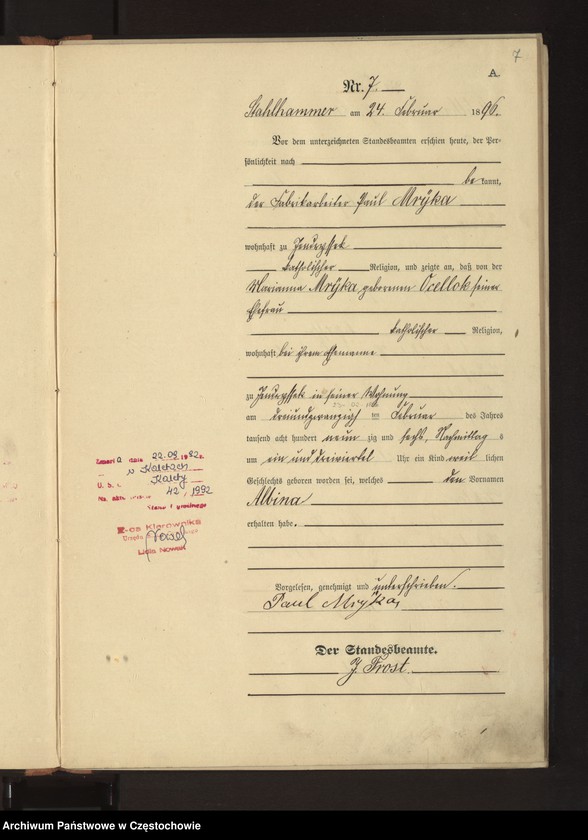 7
A.
Nr. 7.
Stahlhammer am 24. Februar 1896.
Vor dem unterzeichneten Standesbeamten erschien heute, der Per-
sönlichkeit nach
bekannt,
der Fabrikarbeiter Paul Mrÿka
wohnhaft zu Jendryssek
katholischer Religion, und zeigte an, daß von der
Marianna Mrÿka geborenen Ocellok seiner
Ehefrau
katholischer Religion,
wohnhaft bei ihrem Ehemanne
zu Jendryssek in seiner Wohnung
am dreiundzwanzigsten Februar des Jahres
tausend acht hundert neunzig und sechs, Nachmittags
um ein und dreiviertel Uhr ein Kind weiblichen
Geschlechts geboren worden sei, welches den Vornamen
Albina
erhalten habe.
Vorgelesen, genehmigt und unterschrieben.
Paul Mryka,
Der Standesbeamte.
J. Frost.
Zmarła dnia 22.08.1982 r.
w Kaletach
U. S. C. Kalety
Nr. aktu 42/1992
Z-ca Kierownika
Nowak
Lidia Nowak
Archiwum Państwowe w Częstochowie